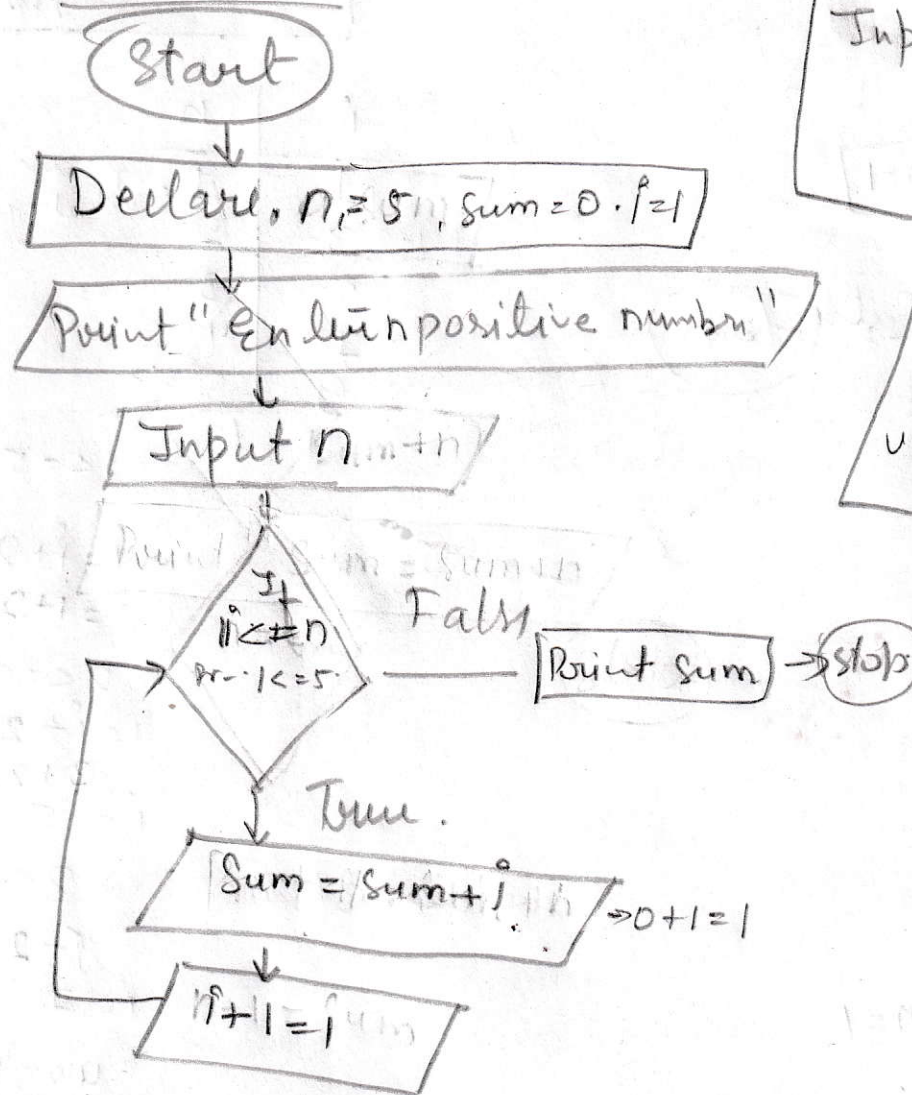 Start
Declare, n = 5, sum = 0. i=1
Print "Enter n positive number"
Input n
If
i<=n
1<=5
False
Print sum
Stop
True.
Sum = sum + i
→0+1=1
i+1=i
Inp
u